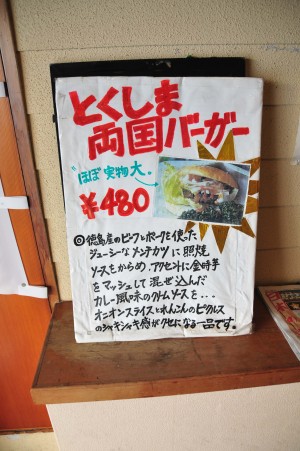 とくしま
両国バーガー
"ほぼ"実物大。
¥480
◎徳島産のビーフとポークを使った
ジューシーなメンチカツに照焼
ソースをからめ、アクセントに金時芋
をマッシュして混ぜ込んだ
カレー風味のクリームソースを...
オニオンスライスとれんこんのピクルス
のシャキシャキ感がクセになる一品です。